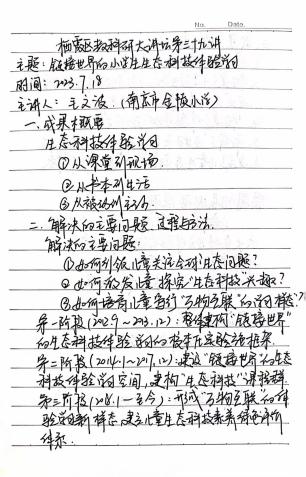 No.   Date.
栖霞区教科研大讲坛第三十九讲
主题:链接世界的小学生生态科技体验学习
时间:2023.7.18
主讲人:王文波(南京市金陵小学)
一、成果概要
生态科技体验学习
①从课堂到现场
②从书本到生活
③从被动到主动
二、解决的主要问题、过程与方法
解决的主要问题:
①如何引领儿童关注全球生态问题?
②如何激发儿童探究"生态科技"兴趣?
③如何培育儿童践行"万物互联"的学习样态?
第一阶段(2002.9~2013.12):整体建构"链接世界"
的生态科技体验学习的校本化实验方案
第二阶段(2014.1~2017.12):建设"链接世界"的生态
科技体验学习空间,建构"生态科技"课程群
第三阶段(2018.1—至今):形成"万物互联"的体
验学习新样态,建立儿童生态科技素养绿色评价
体系.